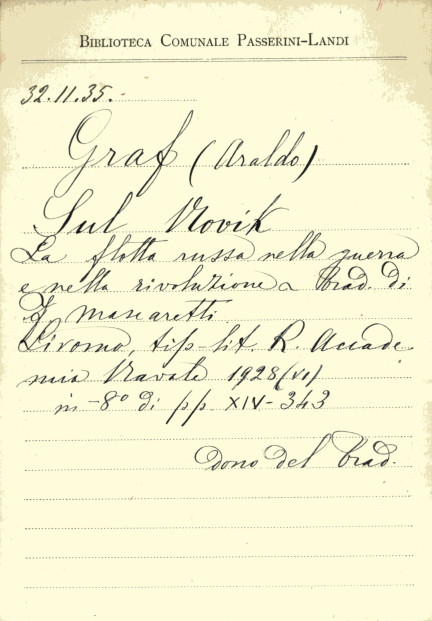 BIBLIOTECA COMUNALE PASSERINI-LANDI
32.11.35.
Graf (Araldo)
Sul Novik
La flotta russa nella guerra
e nella rivoluzione trad. di
Mascaretti
Livorno, tip-lit. R. Accade
mia Navale 1928 (VI)
in-8° di pp XIV-343
dono del trad.